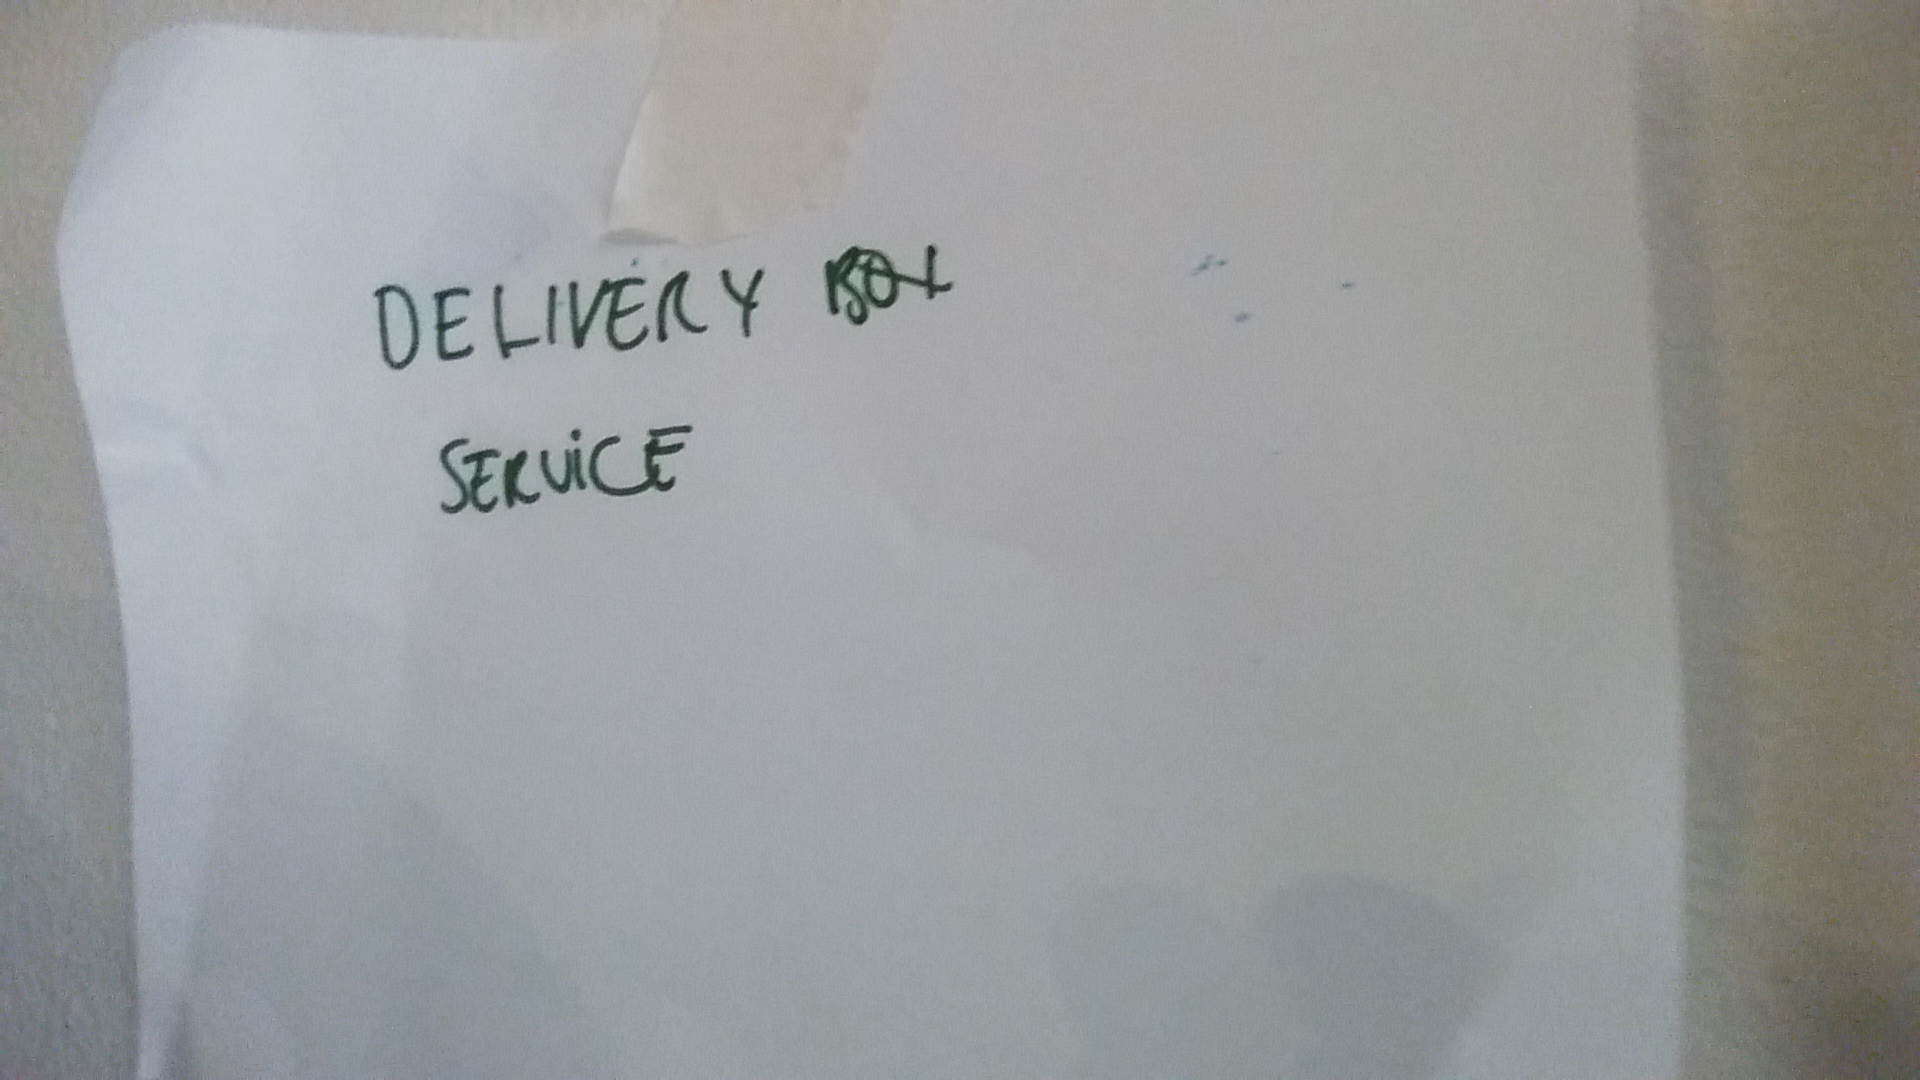 DELIVERY BOX
SERVICE